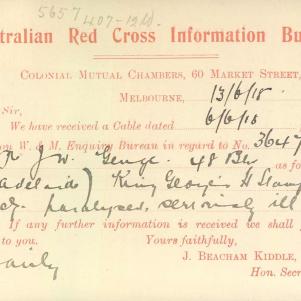 5657 407-12W.
stralian Red Cross Information Bu
COLONIAL MUTUAL CHAMBERS, 60 MARKET STREET,
MELBOURNE, 13/6/18
Sir,
We have received a Cable dated 6/6/18
on W. & M. Enquiry Bureau in regard to No. 3647
J.W. George. 48 Bn
as fo
Adelaide) King George's H Stam
paralysed, seriously ill
If any further information is received we shall f
to you. Yours faithfully,
J. BEACHAM KIDDLE,
Hon. Secr